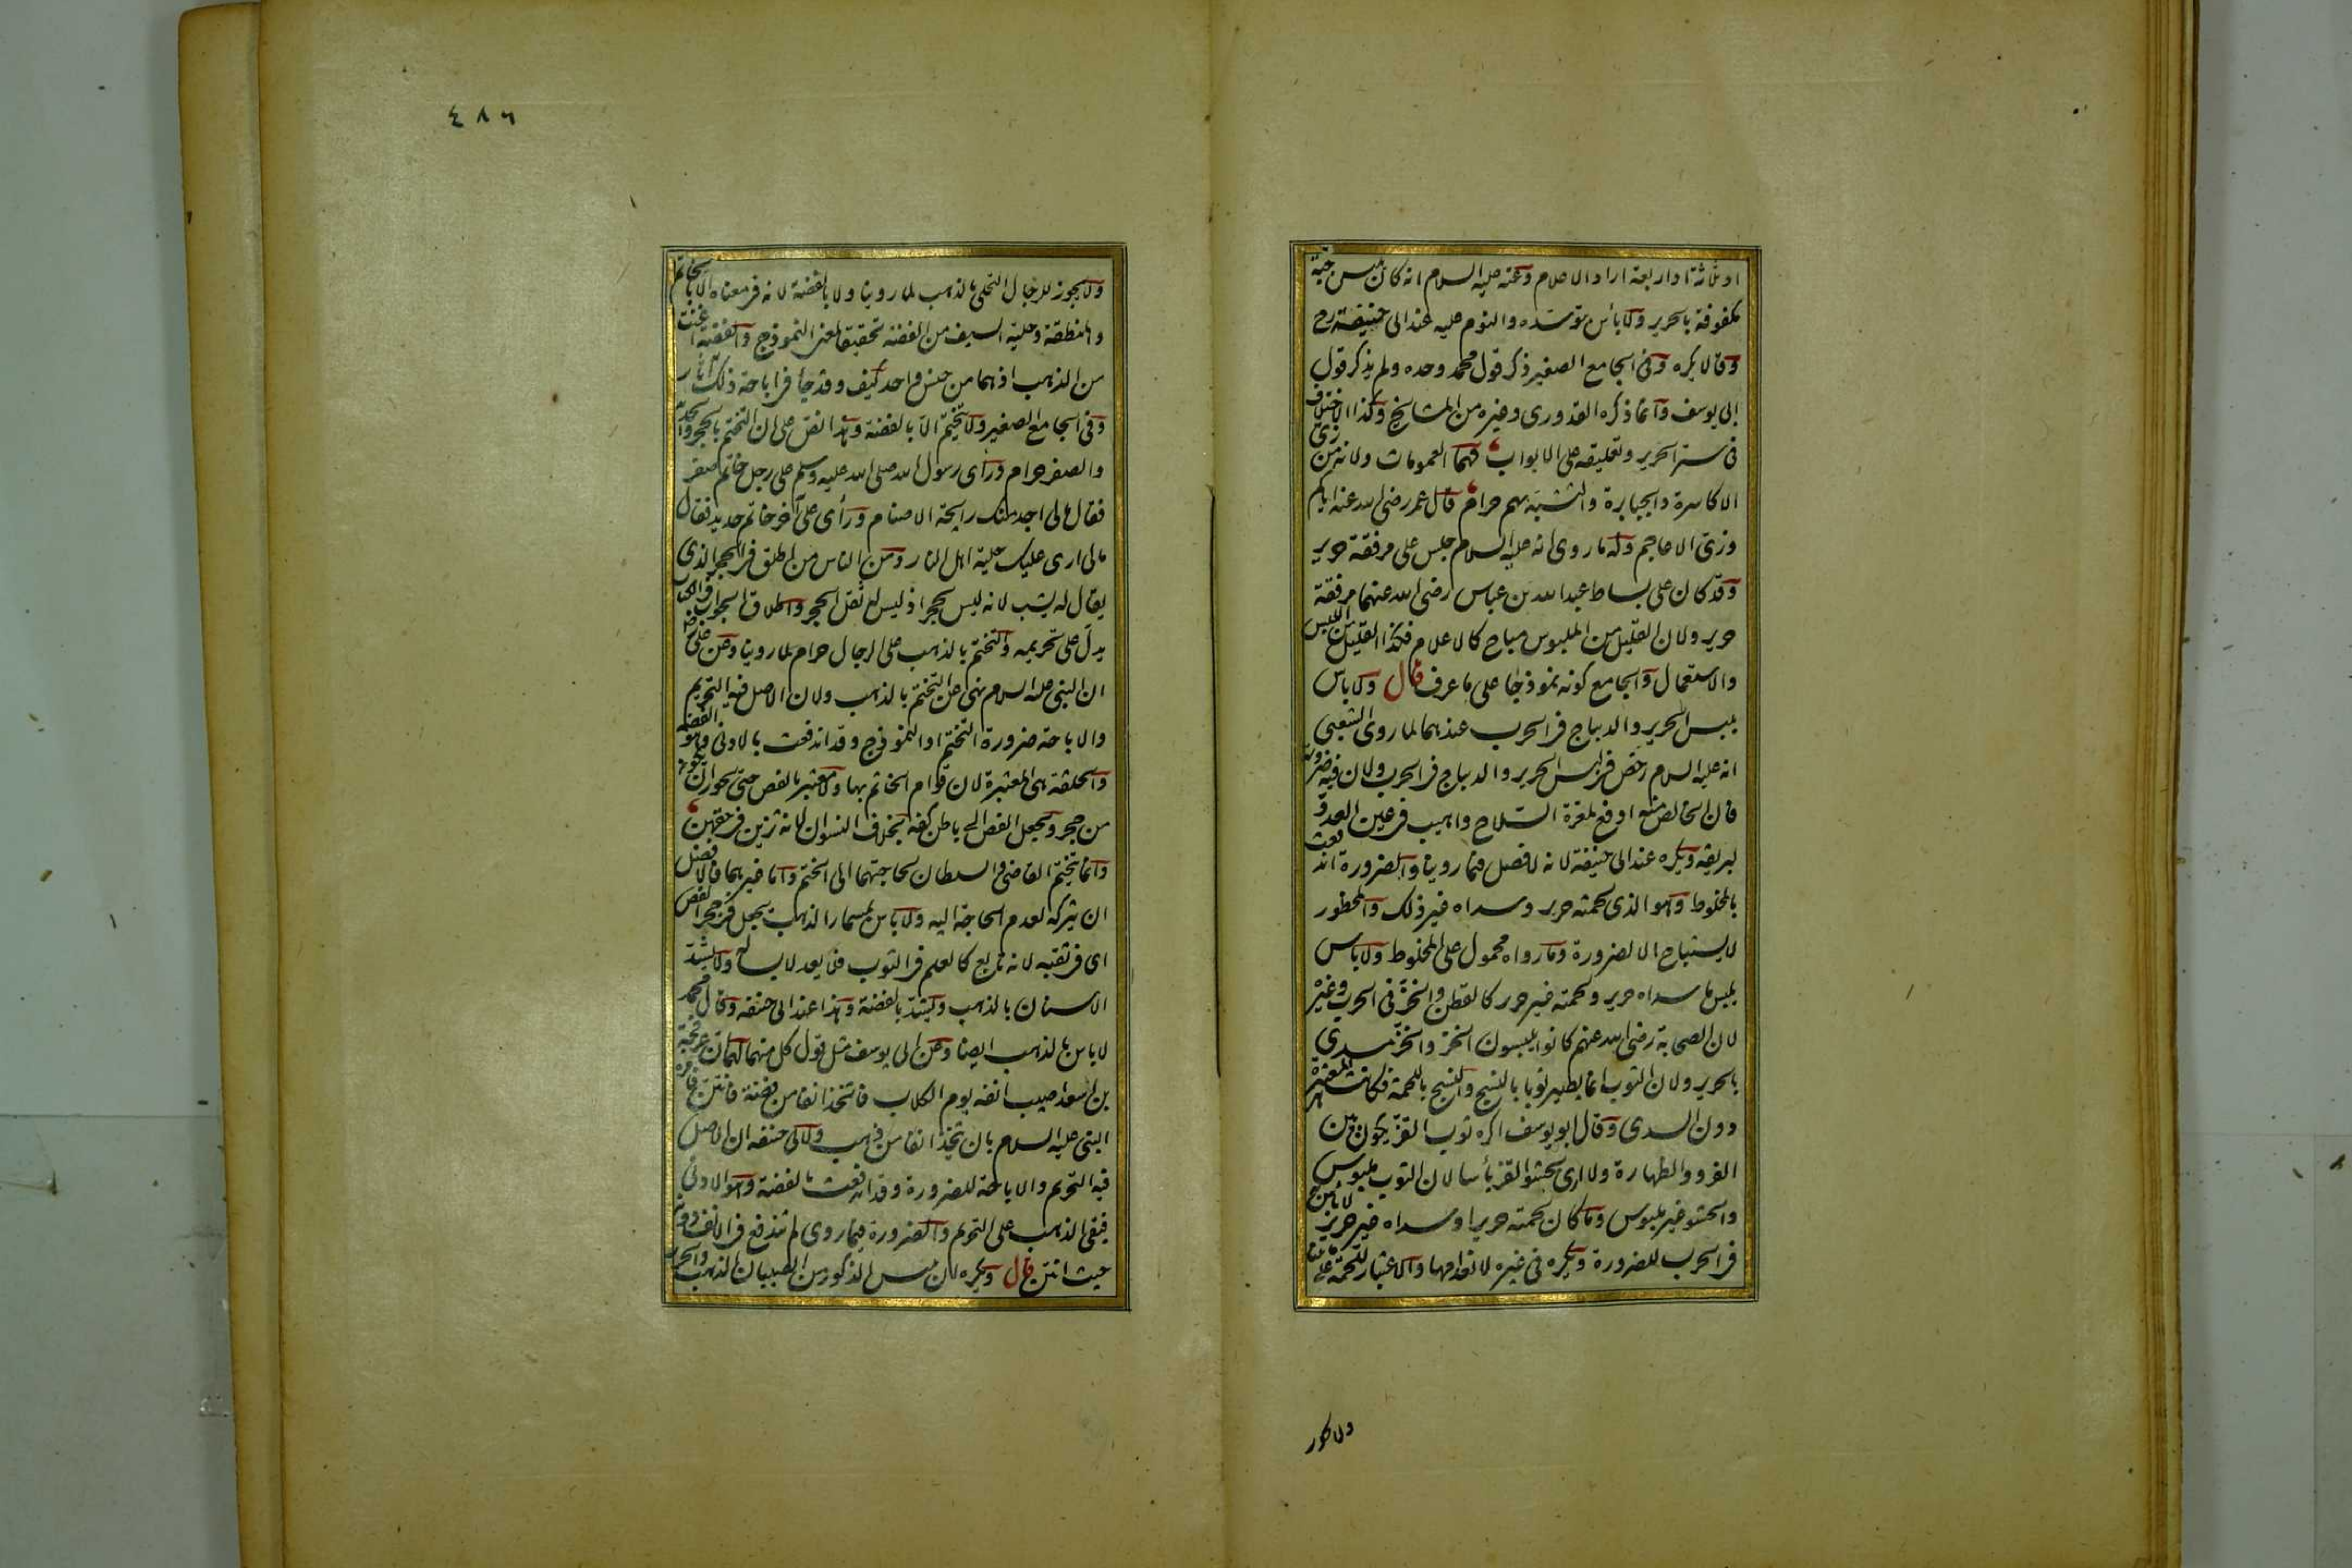 او ثلثة او اربعة اراد الاعلام وعنه عليه السلام انه كان يلبس جبة
مكفوفة بالحرير ولا بأس بتوسده والنوم عليه عند ابى حنيفة رح
وقالا يكره وفى الجامع الصغير ذكر قول محمد وحده ولم يذكر قول
ابى يوسف وانما ذكره القدورى وغيره من المشايخ وكذا الاختلاف
فى ستر الحرير وتعليقه على الابواب لهما العمومات ولانه من زىّ
الاكاسرة والجبابرة والتشبه بهم حرام قال عمر رضى الله عنه اياكم
وزىّ الاعاجم وله ما روى انه عليه السلام جلس على مرفقة حرير
وقد كان على بساط عبد الله بن عباس رضى الله عنهما مرفقة
حرير ولان القليل من الملبوس مباح كالاعلام فكذا القليل من اللبس
والاستعمال والجامع كونه نموذجا على ما عرف قال ولا باس
بلبس الحرير والديباج فى الحرب عندهما لما روى الشعبى
انه عليه السلام رخص فى لبس الحرير والديباج فى الحرب ولان فيه ضرورة
فان الخالص منه ادفع لمعرة السلاح واهيب فى عين العدو
لبريقه ويكره عند ابى حنيفة لانه لا فصل فيما روينا والضرورة اندفعت
بالمخلوط وهو الذى لحمته حرير وسداه غير ذلك والمحظور
لا يستباح الا لضرورة وما رواه محمول على المخلوط ولا باس
بلبس ما سداه حرير ولحمته غير حرير كالقطن والخز فى الحرب وغيره
لان الصحابة رضى الله عنهم كانوا يلبسون الخز والخز مسدى
بالحرير ولان الثوب انما يصير ثوبا بالنسج والنسج باللحمة فكانت هى المعتبرة
دون السدى وقال ابو يوسف اكره ثوب القز يكون بين
الفرو والظهارة ولا ارى بحشو القز بأسا لان الثوب ملبوس
والحشو غير ملبوس وما كان لحمته حريرا وسداه غير حرير لا باس به
فى الحرب للضرورة ويكره فى غيره لانعدامها والاعتبار للحمة على ما بينا
ولا يجوز
٤٨٦
ولا يجوز للرجال التحلى بالذهب لما روينا ولا بالفضة لانه فى معناه الا بالخاتم
والمنطقة وحلية السيف من الفضة تحقيقا لمعنى النموذج والفضة اغنت
من الذهب اذ هما من جنس واحد كيف وقد جاء فى اباحة ذلك آثار
وفى الجامع الصغير ولا يتختم الا بالفضة وهذا نص على ان التختم بالحجر والحديد
والصفر حرام ورأى رسول الله صلى الله عليه وسلم على رجل خاتم صفر
فقال ما لى اجد منك رايحة الاصنام ورأى على آخر خاتم حديد فقال
ما لى ارى عليك حلية اهل النار ومن الناس من اطلق فى الحجر الذى
يقال له يشب لانه ليس بحجر اذ ليس له ثقل الحجر واطلاق الجواب فى الكتاب
يدل على تحريمه والتختم بالذهب على الرجال حرام لما روينا وعن على رضه
ان النبى عليه السلام نهى عن التختم بالذهب ولان الاصل فيه التحريم
والاباحة ضرورة التختم او النموذج وقد اندفعت بالادنى وهو الفضة
والحلقة هى المعتبرة لان قوام الخاتم بها ولا معتبر بالفص حتى يجوز ان يكون
من حجر ويجعل الفص الى باطن كفه بخلاف النسوان لانه تزين فى حقهن
وانما يتختم القاضى والسلطان لحاجتهما الى الختم واما غيرهما فالافضل
ان يتركه لعدم الحاجة اليه ولا باس بمسمار الذهب يجعل فى حجر الفص
اى فى ثقبه لانه تابع كالعلم فى الثوب فلا يعد لابسا له ولا يشد
الاسنان بالذهب ويشد بالفضة وهذا عند ابى حنيفه وقال محمد
لا باس بالذهب ايضا وعن ابى يوسف مثل قول كل منهما لهما ان عرفجة
بن اسعد اصيب انفه يوم الكلاب فاتخذ انفا من فضة فانتن فامره
النبى عليه السلام بان يتخذ انفا من ذهب ولابى حنيفه ان الاصل
فيه التحريم والاباحة للضرورة وقد اندفعت بالفضة وهو الادنى
فبقى الذهب على التحريم والضرورة فيما روى لم تندفع فى الانف دونه
حيث انتن قال ويكره ان يلبس الذكور من الصبيان الذهب والحرير